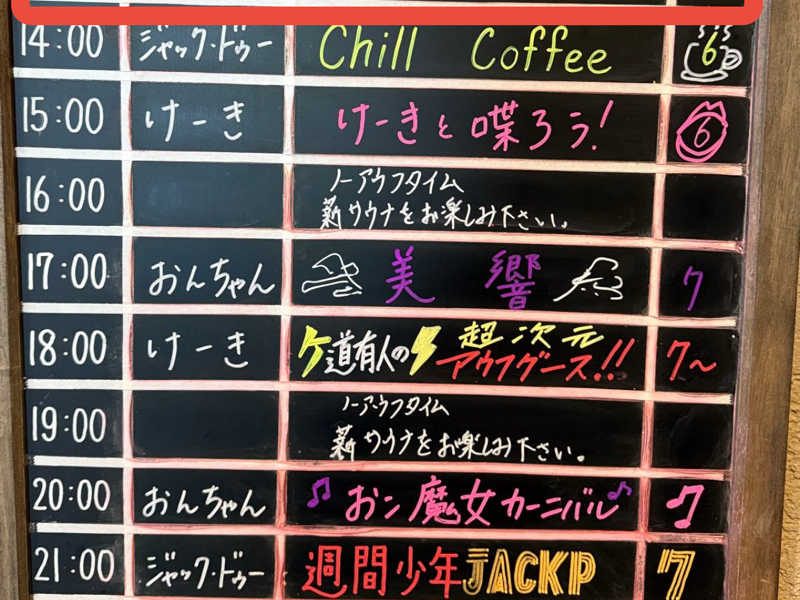 14:00 ジャック・ドゥー Chill Coffee 6
15:00 けーき けーきと喋ろう! 6
16:00 ノーアウフタイム
薪サウナをお楽しみ下さい。
17:00 おんちゃん 美 響 7
18:00 けーき ケ道有人の 超次元
アウフグース!! 7~
19:00 ノーアウフタイム
薪サウナをお楽しみ下さい。
20:00 おんちゃん おン魔女カーニバル 7
21:00 ジャック・ドゥー 週間少年JACKP 7